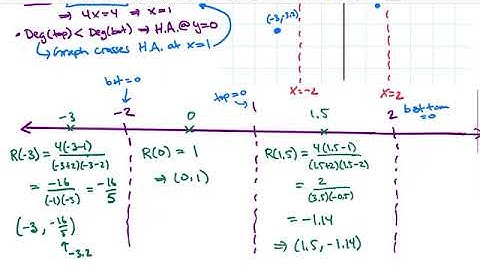 ⇒ 4x=4 ⇒ x=1
• Deg(top) < Deg(bot) ⇒ H.A.@y=0
↳ Graph crosses H.A. at x=1
(-3,-3.2)
x=-2
x=2
bot=0
top=0
bottom
=0
-3
-2
0
1
1.5
2
R(-3) = 4(-3-1)/(-3+2)(-3-2)
= -16/(-1)(-5) = -16/5
(-3, -16/5)
↑
-3.2
R(0) = 1
⇒ (0,1)
R(1.5) = 4(1.5-1)/(1.5+2)(1.5-2)
= 2/(3.5)(-0.5)
= -1.14
⇒ (1.5, -1.14)